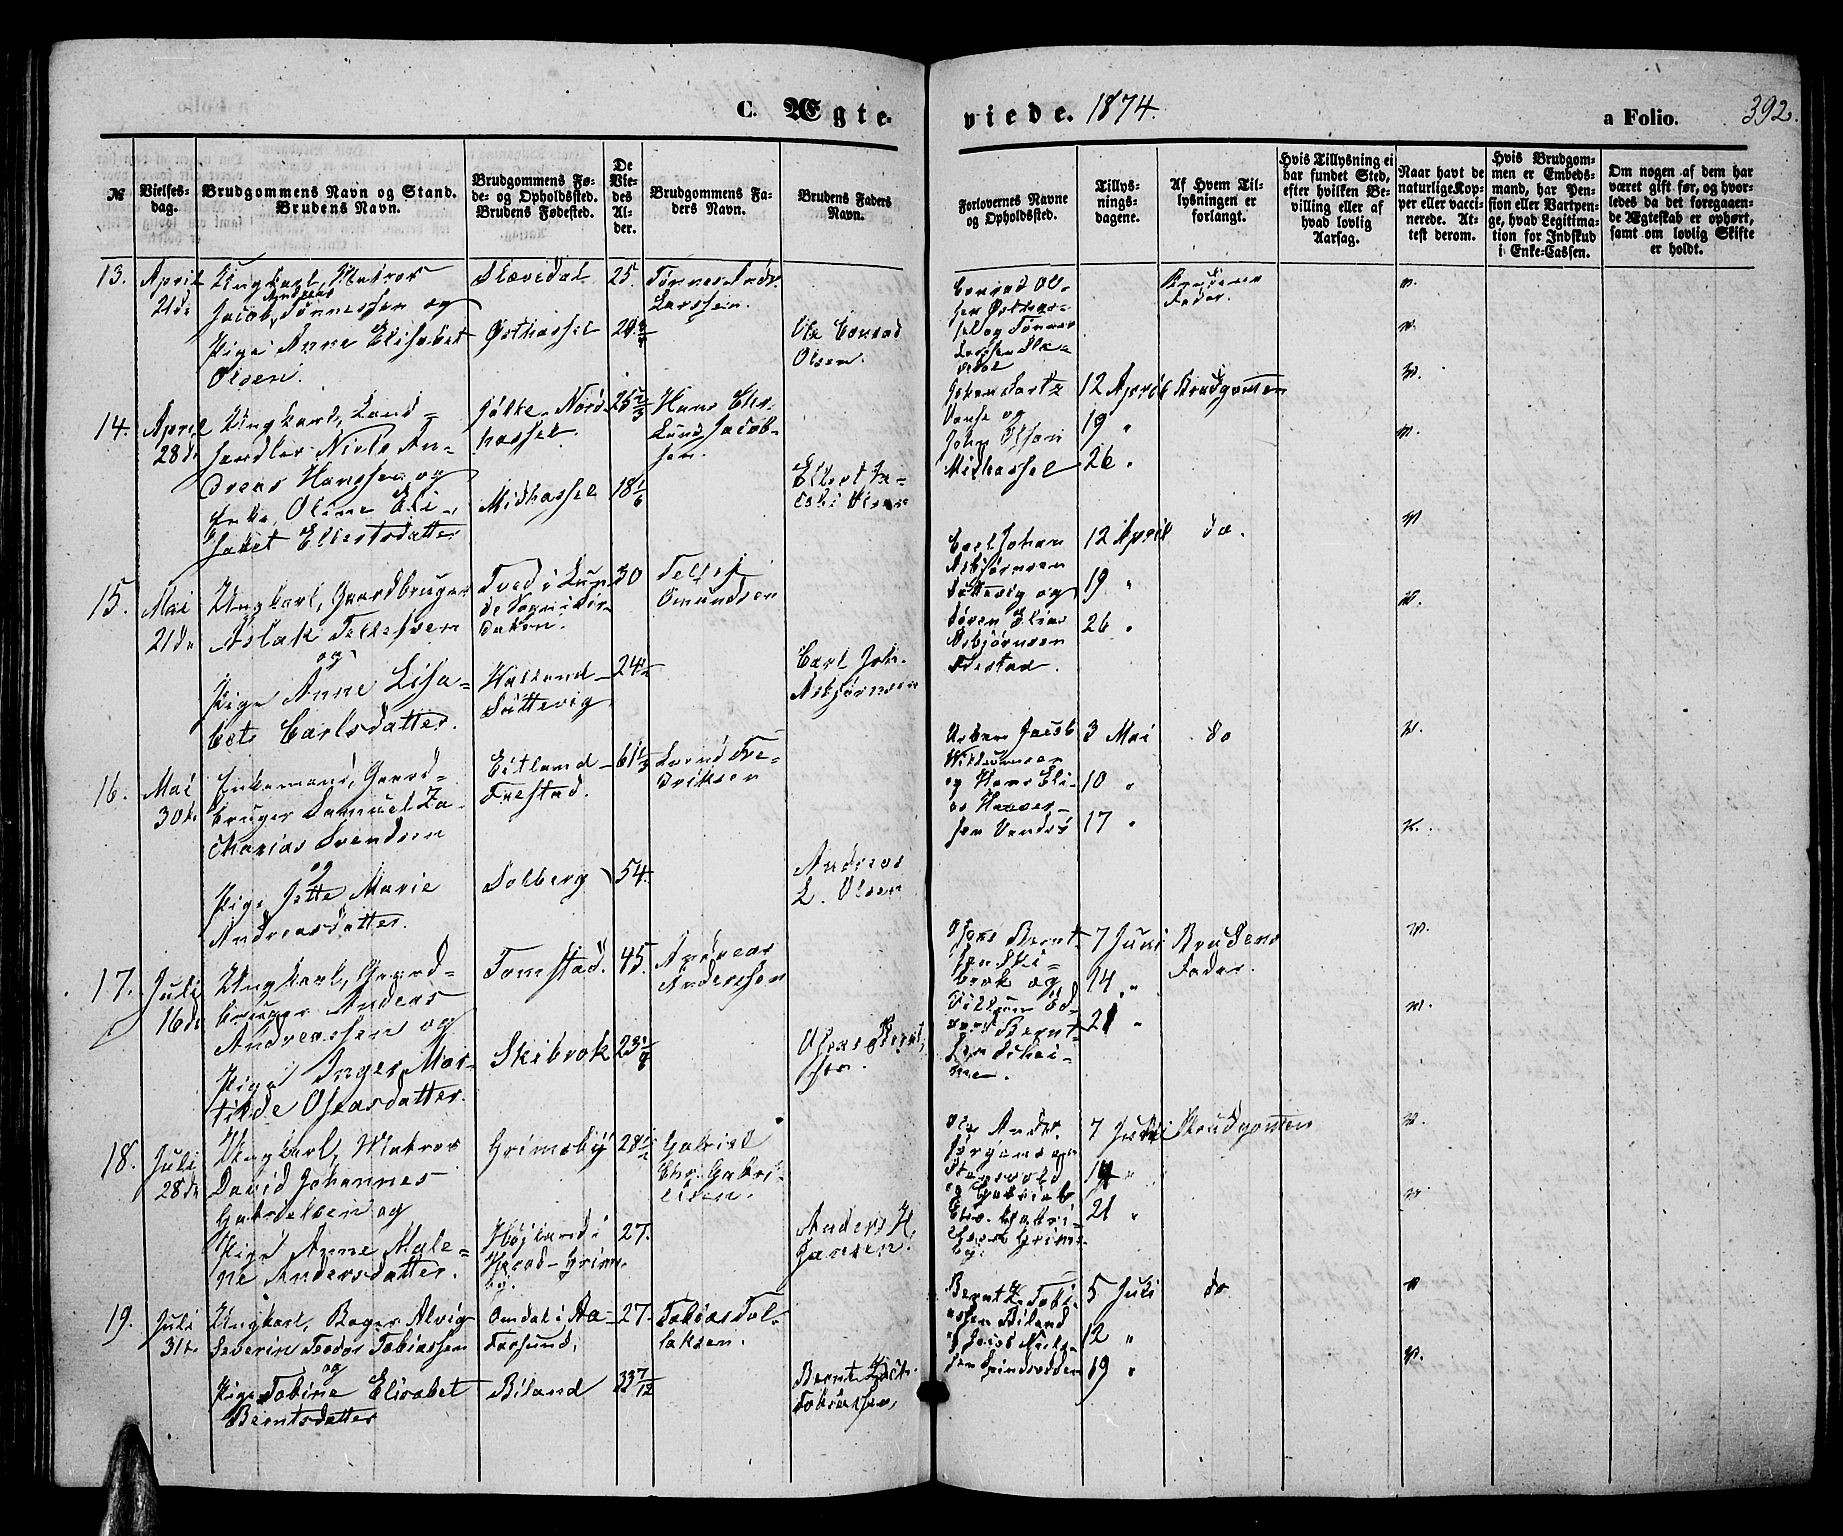 C. Ægte-
viede. 1874.
a Folio.
392.
№
Vielses-
dag.
Brudgommens Navn og Stand.
Brudens Navn.
Brudgommens Fø-
de- og Opholdssted.
Brudens Fødested.
De
Vie-
des
Al-
der.
Brudgommens Fa-
ders Navn.
Brudens Faders
Navn.
Forlovernes Navne
og Opholdssted.
Tillys-
nings-
dagene.
Af Hvem Til-
lysningen er
forlangt.
Hvis Tillysning ei
har fundet Sted,
efter hvilken Be-
villing eller af
hvad lovlig
Aarsag.
Naar havt de
naturlige Kop-
per eller vacci-
nerede. At-
test derom.
Hvis Brudgom-
men er Embeds-
mand, har Pen-
sion eller Vartpen-
ge, hvad Legitima-
tion for Indskud
i Enke-Cassen.
Om nogen af dem har
været gift før, og hvor-
ledes da det foregaaen-
de Ægteskab er ophørt,
samt om lovlig Skifte
er holdt.
13.
April
21de
Ungkarl, Matros
Andreas
Jacob Tønnessen og
Pige Anne Elisabet
Olsen.
Slævdal
Østhassel
25.
Tønnes Andr.
Larssen.
Ole Conrad
Olsen.
Conrad Ol-
sen Østhas-
sel og Tønnes
Brudens
Fader.
14.
April
28de
Ungkarl, Land-
handler Niels An-
dreas Hanssen og
Enke, Oline Eli-
sabet Ellertsdatter
Jølle - Nord-
hassel.
Midhassel
25 2/3
18 1/6
Hans Chr.
Lund Jacob-
sen.
Ellert Ja-
cobi Olsen
Vanse og
John Olsen
Midhassel
12 April
19 "
26 "
Brudgommen
15.
Mai
21de
Ungkarl, Gaardbruger
Aslak Tellefsen
og
Pige Anne Lisa-
bet Carlsdatter.
Tved i Lun-
de Sogn i Sir-
dalen.
Hulland -
Düttevig
30
24 1/2
Tellef
Omundsen
Carl Joh.
Asbjørnsen
Carl Johan
Asbjørnsen
Düttevig og
Søren Elias
Asbjørnsen
Frestad.
12 April
19 "
26 "
do.
16.
Mai
30te
Enkemand, Gaard-
bruger Samuel Za-
charias Svendsen
og
Pige Jette Marie
Andreasdatter.
Eitland -
Frestad.
Solberg
61 1/3
54.
Svend Fre-
driksen
Andreas
L. Olsen
Jacob
og Hans Eli-
as Hanses-
sen
3 Mai
10 "
17 "
do
17.
Juli
16de
Ungkarl, Gaard-
bruger Anders
Andreassen og
Pige Inger Mar-
tilde Oseasdatter.
Tomstad.
Skibrok
45.
Andreas
Anderssen
Oseas Bernt-
sen.
Oseas Bernt-
sen Ski-
brok og
Bernt-
7 Juni
14 "
21 "
Brudens
Fader.
18.
Juli
28de
Ungkarl, Matros
David Johannes
Gabrielsen og
Pige Anne Male-
ne Andersdatter.
Grimsby
Højland i
Herad - Grims-
by.
28 1/2
27.
Gabriel
Chr. Gabri-
elsen.
Anders H.
Jansen.
Ole Andr.
Jørgensen
Stensvold
og Gabriel
Chr. Gabri-
elsen Grims-
by.
7 Juni
14 "
21 "
Brudgommen
19.
Juli
31te
Ungkarl, Bager Alvig
Severin Teodor Tobiassen
og
Pige Tobine Elisabet
Berntsdatter
Omdal i Aa-
Farsund.
Biland
27.
33 7/12
Tobias Tol-
laksen.
Bernt Zach.
Tobiassen.
Bernt Z. Tobi-
assen Biland
5 Juli
12 "
19 "
do